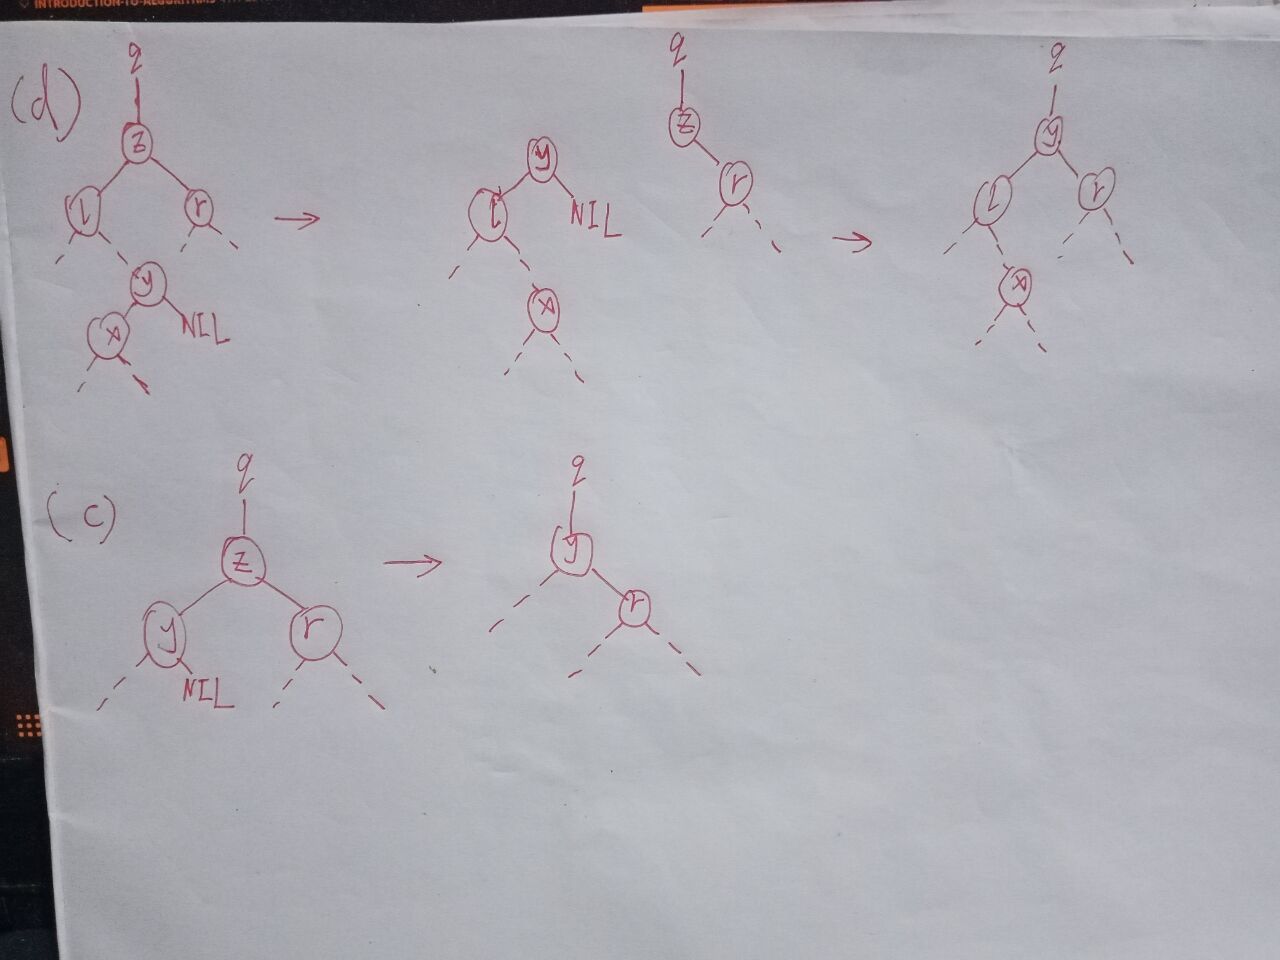 INTRODUCTION-TO-ALGORITHMS
(d)
q
z
l r
y
x NIL
→
y
l NIL
x
q
z
r
→
q
y
l r
x
(c)
q
z
y r
NIL
→
q
y
r